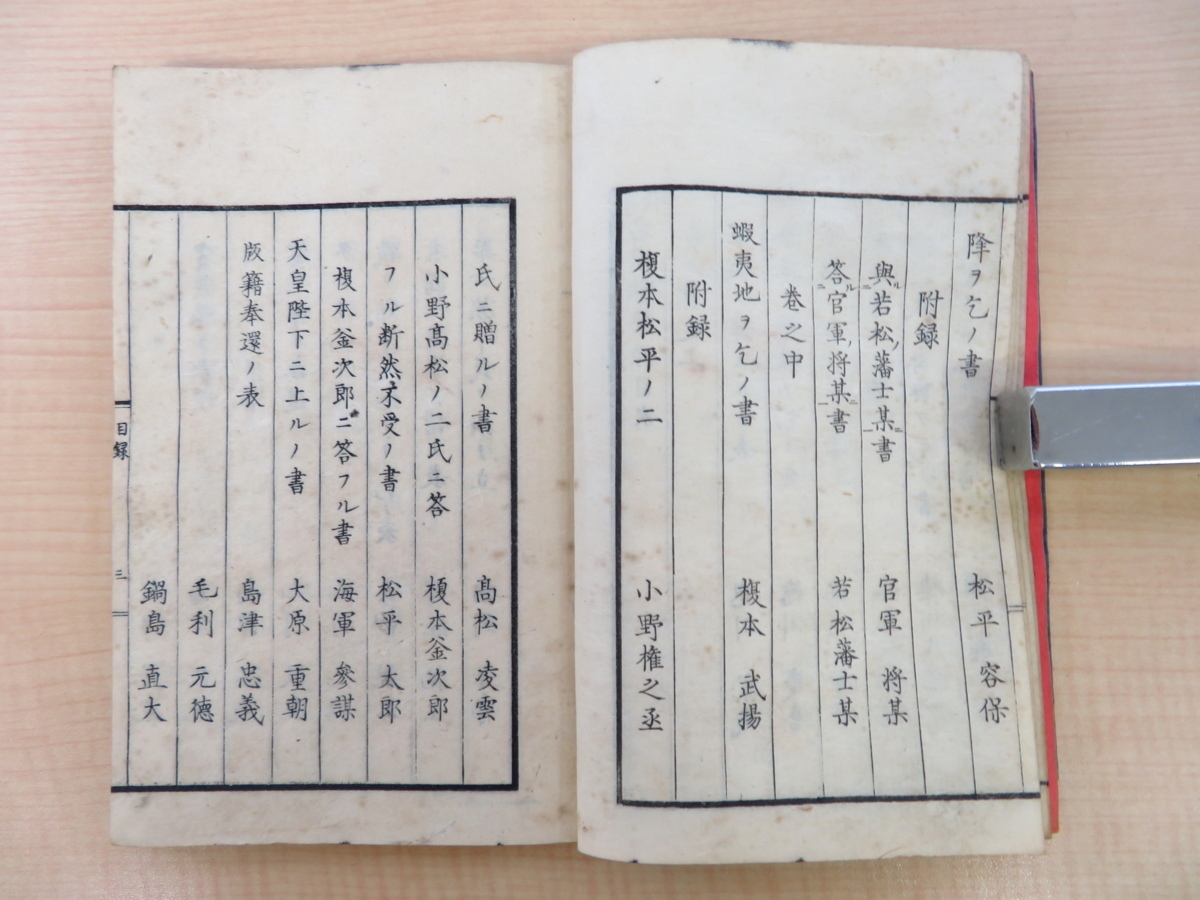 降ヲ乞ノ書 松平容保
附録
與若松藩士某書 官軍将某
答官軍将某書 若松藩士某
巻之中
蝦夷地ヲ乞ノ書 榎本武揚
附録
榎本松平ノ二 小野権之丞
氏ニ贈ルノ書 高松凌雲
小野髙松ノ二氏ニ答 榎本釜次郎
フル断然不受ノ書 松平太郎
榎本釜次郎ニ答フル書 海軍參謀
天皇陛下ニ上ルノ書 大原重朝
版籍奉還ノ表 島津忠義
毛利元徳
鍋島直大
目録 三